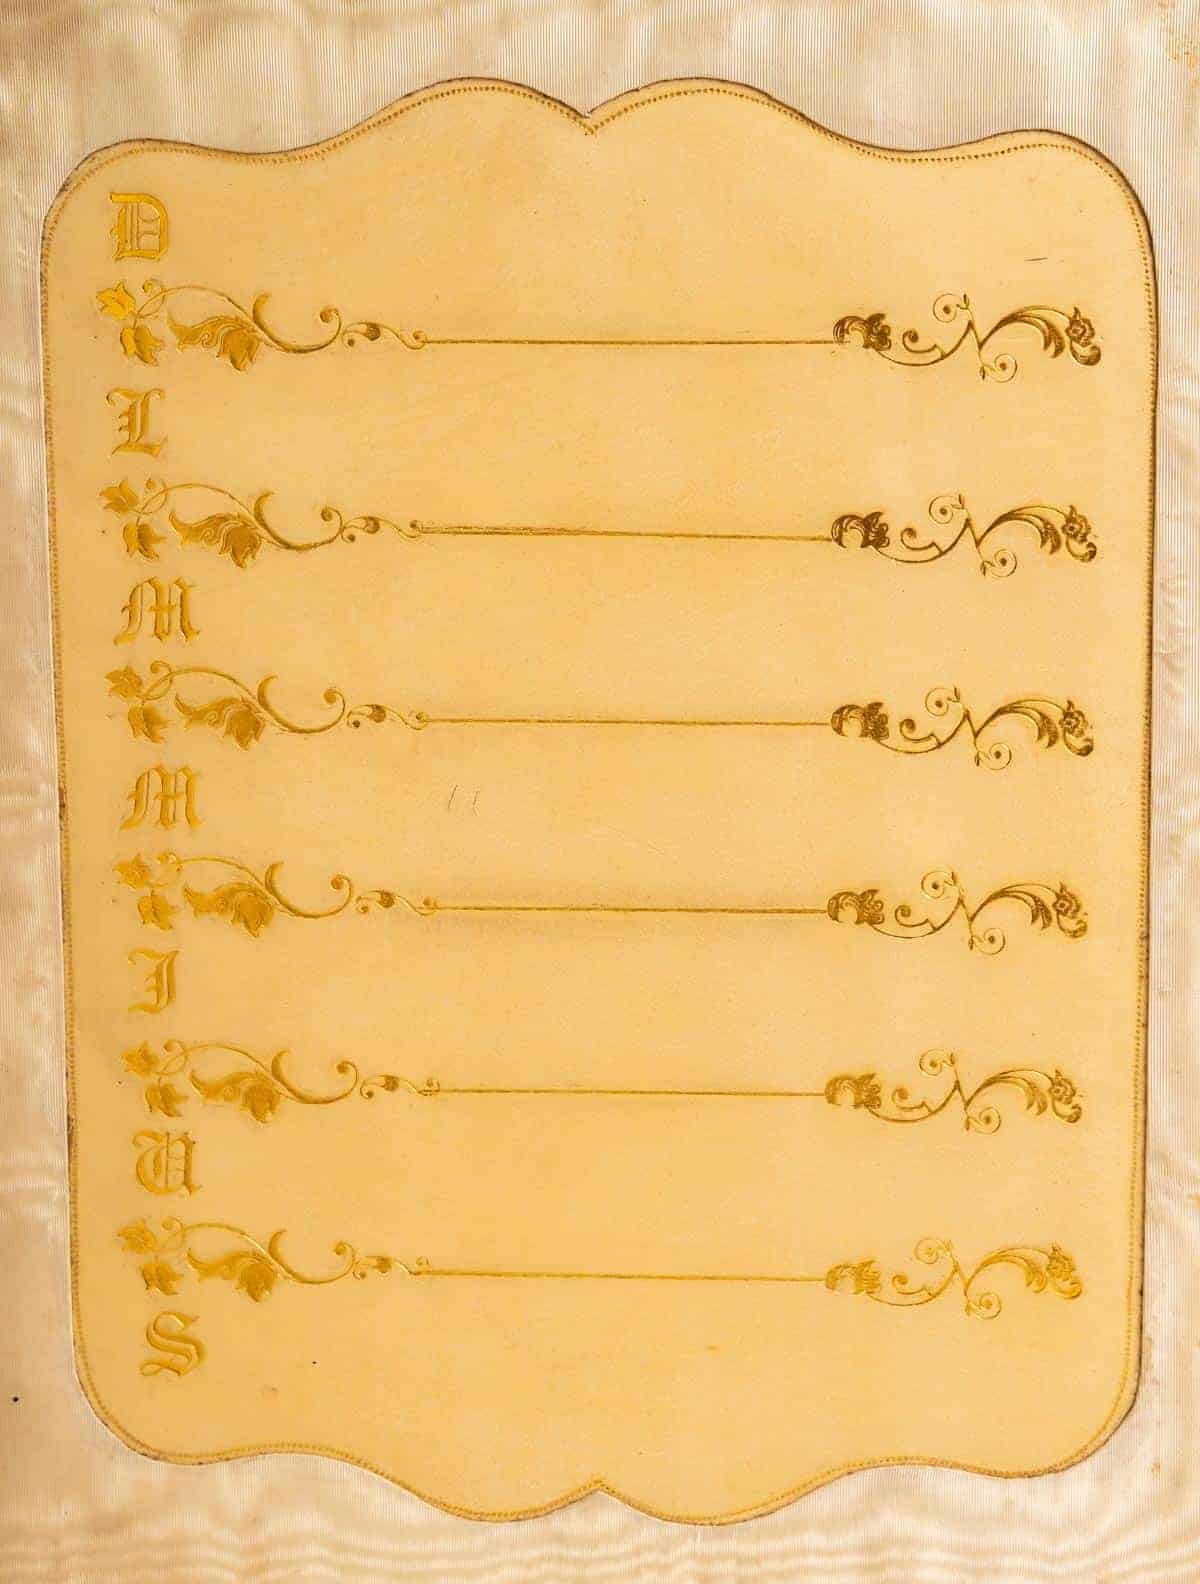 D
L
M
M
J
V
S